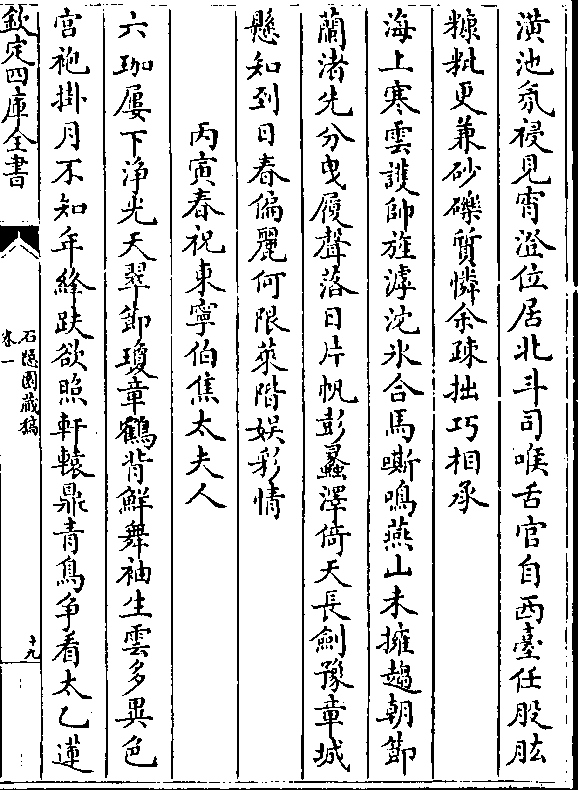 潢池氛祲見宵澄位居北斗司喉舌官自西臺任股肱
糠粃更兼砂礫質憐余疎拙巧相承
海上寒雲護帥旌滹沱氷合馬嘶鳴燕山未擁趨朝節
蘭渚先分曳履聲落日片帆彭蠡澤倚天長劍豫章城
懸知到日春偏麗何限萊階娱彩情
丙寅春祝東寧伯焦太夫人
六珈屢下淨光天翠節瓊章鶴背鮮舞袖生雲多異色
宮袍掛月不知年絳趺欲照軒轅鼎青鳥争看太乙蓮
欽定四庫全書
石隠園藏稿
卷一
十九